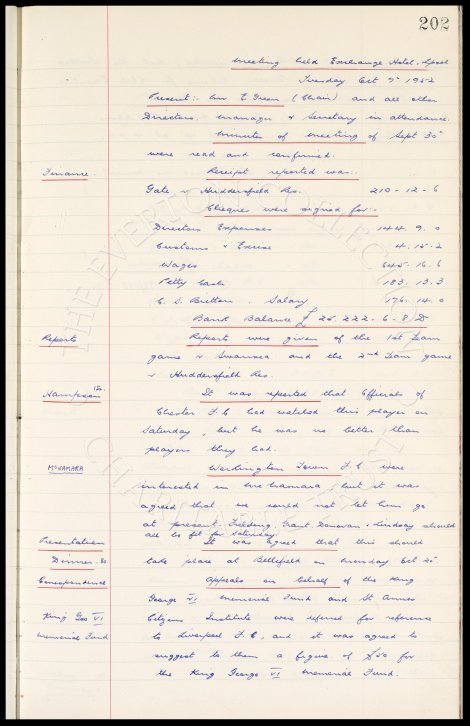 202
Meeting held Exchange Hotel. L/pool
Tuesday Oct 7th 1952
Present:- Mr E Green (Chair) and all other
Directors. Manager & Secretary in attendance.
Minutes of meeting of Sept 30
were read and confirmed.
Finance.
Receipt reported was:-
Gate v Huddersfield Res. 210-12-6
Cheques were signed for:-
Directors Expenses 144. 9. 0
Customs & Excise 4. 15. 2
Wages 645. 16. 6
Petty Cash 183. 13. 3
C. S. Britton. Salary 176. 14. 0
Bank Balance £ 25. 222 - 6 - 8 D
Reports
Reports were given of the 1st Team
game v Swansea and the 2nd Team game
v Huddersfield Res.
Hampson
It was reported that Officials of
Chester F.C had watched this player on
Saturday, but he was no better than
players they had.
McNAMARA
Workington Town F.C were
interested in McNamara, but it was
agreed that we could not let him go
at present. Fielding, Grant, Donovan, Lindsay should
all be fit for Saturday.
Presentation
Dinner.
It was agreed that this should
take place at Bellefield on Monday Oct
Correspondence
Appeals on behalf of the King
George VI Memorial Fund and St Annes
King Geo VI
Citizens Institute were deferred for reference
Memorial Fund
to Liverpool F.C. and it was agreed to
suggest to them a figure of £50 for
the King George VI Memorial Fund.
THE EVERTON COLLECTION
CHARITABLE TRUST